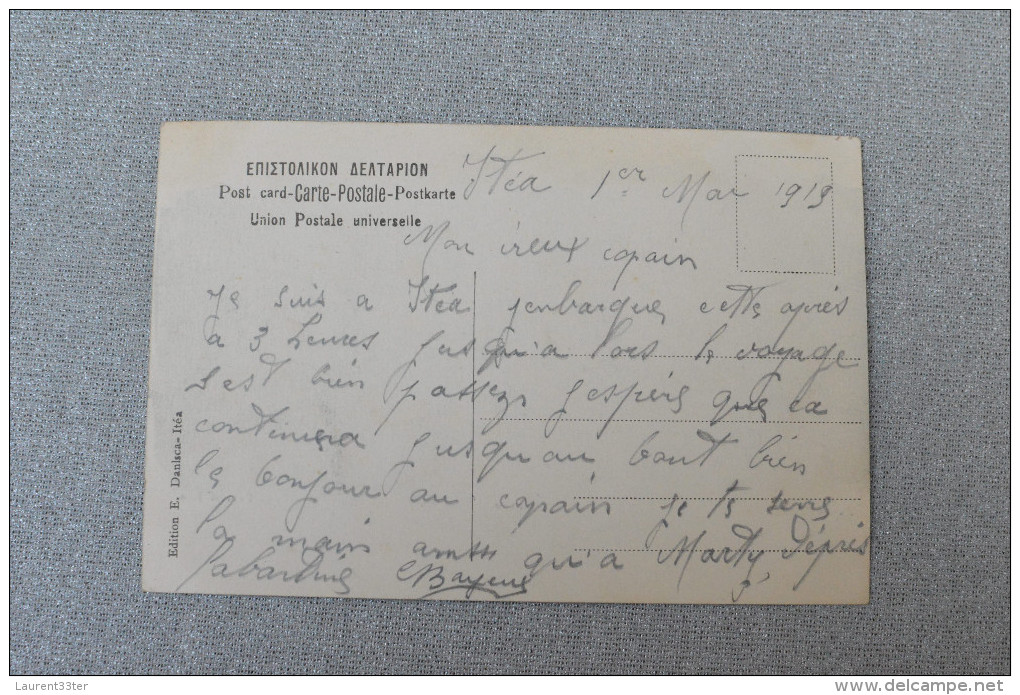 ΕΠΙΣΤΟΛΙΚΟΝ ΔΕΛΤΑΡΙΟΝ
Post card-Carte-Postale-Postkarte
Union Postale universelle
Itéa 1er Mar 1919
Mon vieux copain
Je suis a Itéa jenbarque cette après
a 3 heures jusqu'a lors le voyage
sest bien passez jespère que ca
continuera jusquau bout bien
le bonjour au copain je te serre
la main ainsi qu'a Marty
Edition E. Danisca-Itéa
Laurent33ter
www.delcampe.net